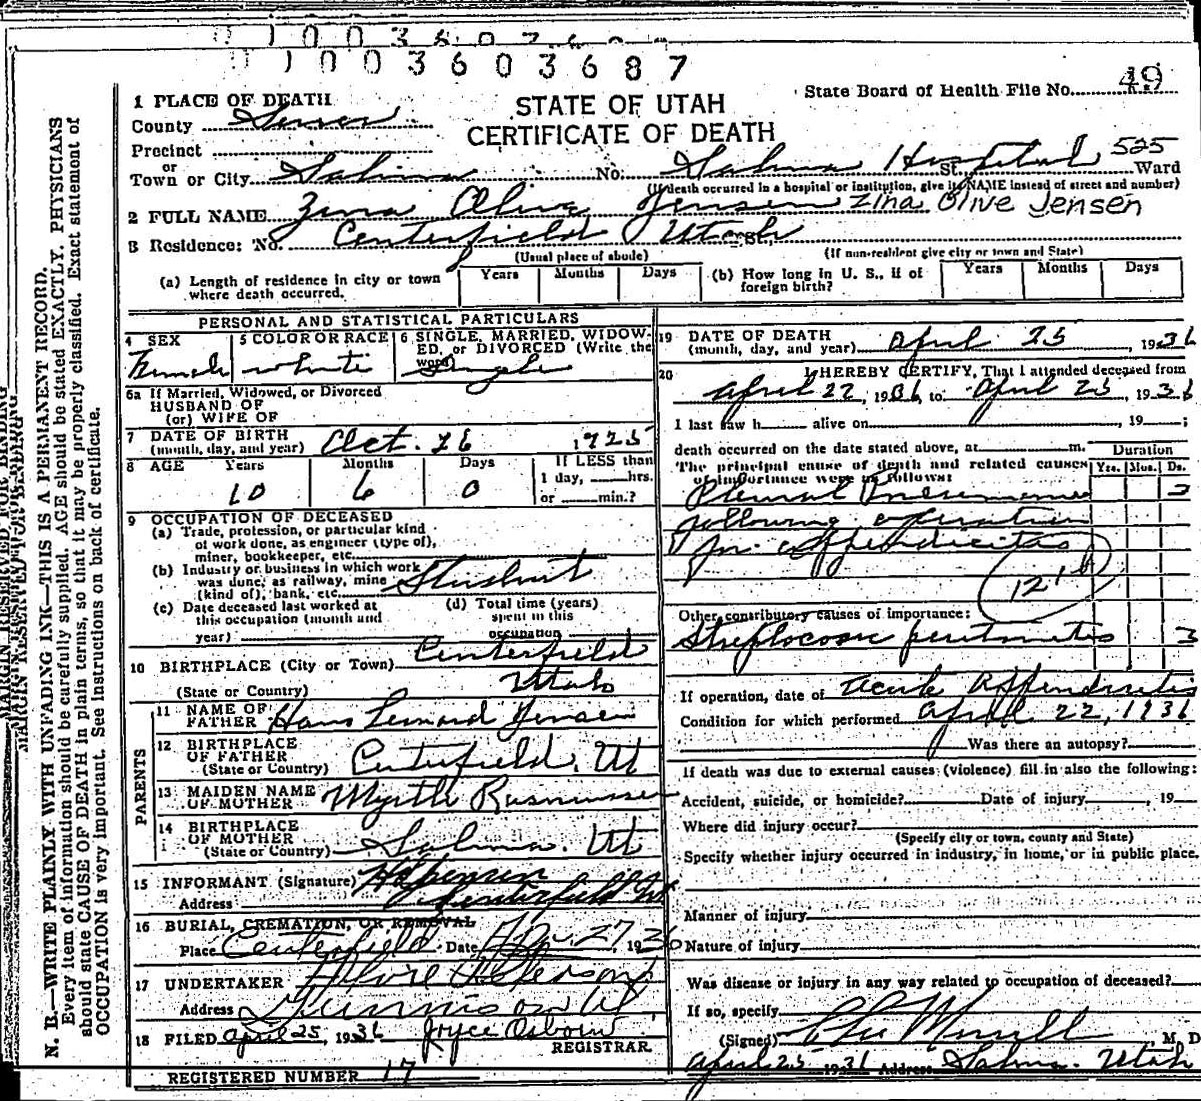 0 1 0 0 3 6 0 3 6 8 7
State Board of Health File No. 49
STATE OF UTAH
CERTIFICATE OF DEATH
1 PLACE OF DEATH
County Sevier
Precinct
or
Town or City Salina No. Salina Hospital St. 525 Ward
(If death occurred in a hospital or institution, give its NAME instead of street and number)
2 FULL NAME Zina Olive Jensen Zina Olive Jensen
3 Residence: No. Centerfield Utah St.
(Usual place of abode) (If non-resident give city or town and State)
(a) Length of residence in city or town where death occurred. Years Months Days (b) How long in U. S., if of foreign birth? Years Months Days
PERSONAL AND STATISTICAL PARTICULARS
4 SEX Female 5 COLOR OR RACE white 6 SINGLE, MARRIED, WIDOWED, or DIVORCED (Write the word) Single
6a If Married, Widowed, or Divorced
HUSBAND OF
(or) WIFE OF
7 DATE OF BIRTH (month, day, and year) Oct. 26 1925
8 AGE Years 10 Months 6 Days 0 If LESS than 1 day, hrs. or min.?
9 OCCUPATION OF DECEASED
(a) Trade, profession, or particular kind
of work done, as engineer (type of),
miner, bookkeeper, etc.
(b) Industry or business in which work
was done, as railway, mine
(kind of), bank, etc. Student
(c) Date deceased last worked at this occupation (month and year)
(d) Total time (years) spent in this occupation
10 BIRTHPLACE (City or Town) Centerfield
(State or Country) Utah
PARENTS
11 NAME OF FATHER Hans Leonard Jensen
12 BIRTHPLACE OF FATHER (State or Country) Centerfield, Ut
13 MAIDEN NAME OF MOTHER Myrtle Rasmussen
14 BIRTHPLACE OF MOTHER (State or Country) Salina. Ut
15 INFORMANT (Signature) H Jensen
Address Centerfield Ut
16 BURIAL, CREMATION, OR REMOVAL
Place Centerfield Date Apr. 27, 1936
17 UNDERTAKER
Address Gunnison Ut
18 FILED April 25, 1936 Joyce Osborn
REGISTRAR
REGISTERED NUMBER 17
19 DATE OF DEATH (month, day, and year) April 25, 1936
20 I HEREBY CERTIFY, That I attended deceased from
April 22, 1936, to April 25, 1936
I last saw h alive on , 19 ;
death occurred on the date stated above, at m.
The principal cause of death and related causes
of importance were as follows: Duration Yrs. Mos. Ds.
Pneumonia 3
following operation
for appendicitis
12 1 b
Other contributory causes of importance:
Streptococcic peritonitis 3
If operation, date of Acute Appendicitis
Condition for which performed April 22, 1936
Was there an autopsy?
If death was due to external causes (violence) fill in also the following:
Accident, suicide, or homicide? Date of injury , 19
Where did injury occur?
(Specify city or town, county and State)
Specify whether injury occurred in industry, in home, or in public place.
Manner of injury
Nature of injury
Was disease or injury in any way related to occupation of deceased?
If so, specify
(Signed) M. D.
April 25 1936 Address Salina. Utah
N. B.—WRITE PLAINLY WITH UNFADING INK—THIS IS A PERMANENT RECORD.
Every item of information should be carefully supplied. AGE should be stated EXACTLY. PHYSICIANS
should state CAUSE OF DEATH in plain terms, so that it may be properly classified. Exact statement of
OCCUPATION is very important. See instructions on back of certificate.
MARGIN RESERVED FOR BINDING